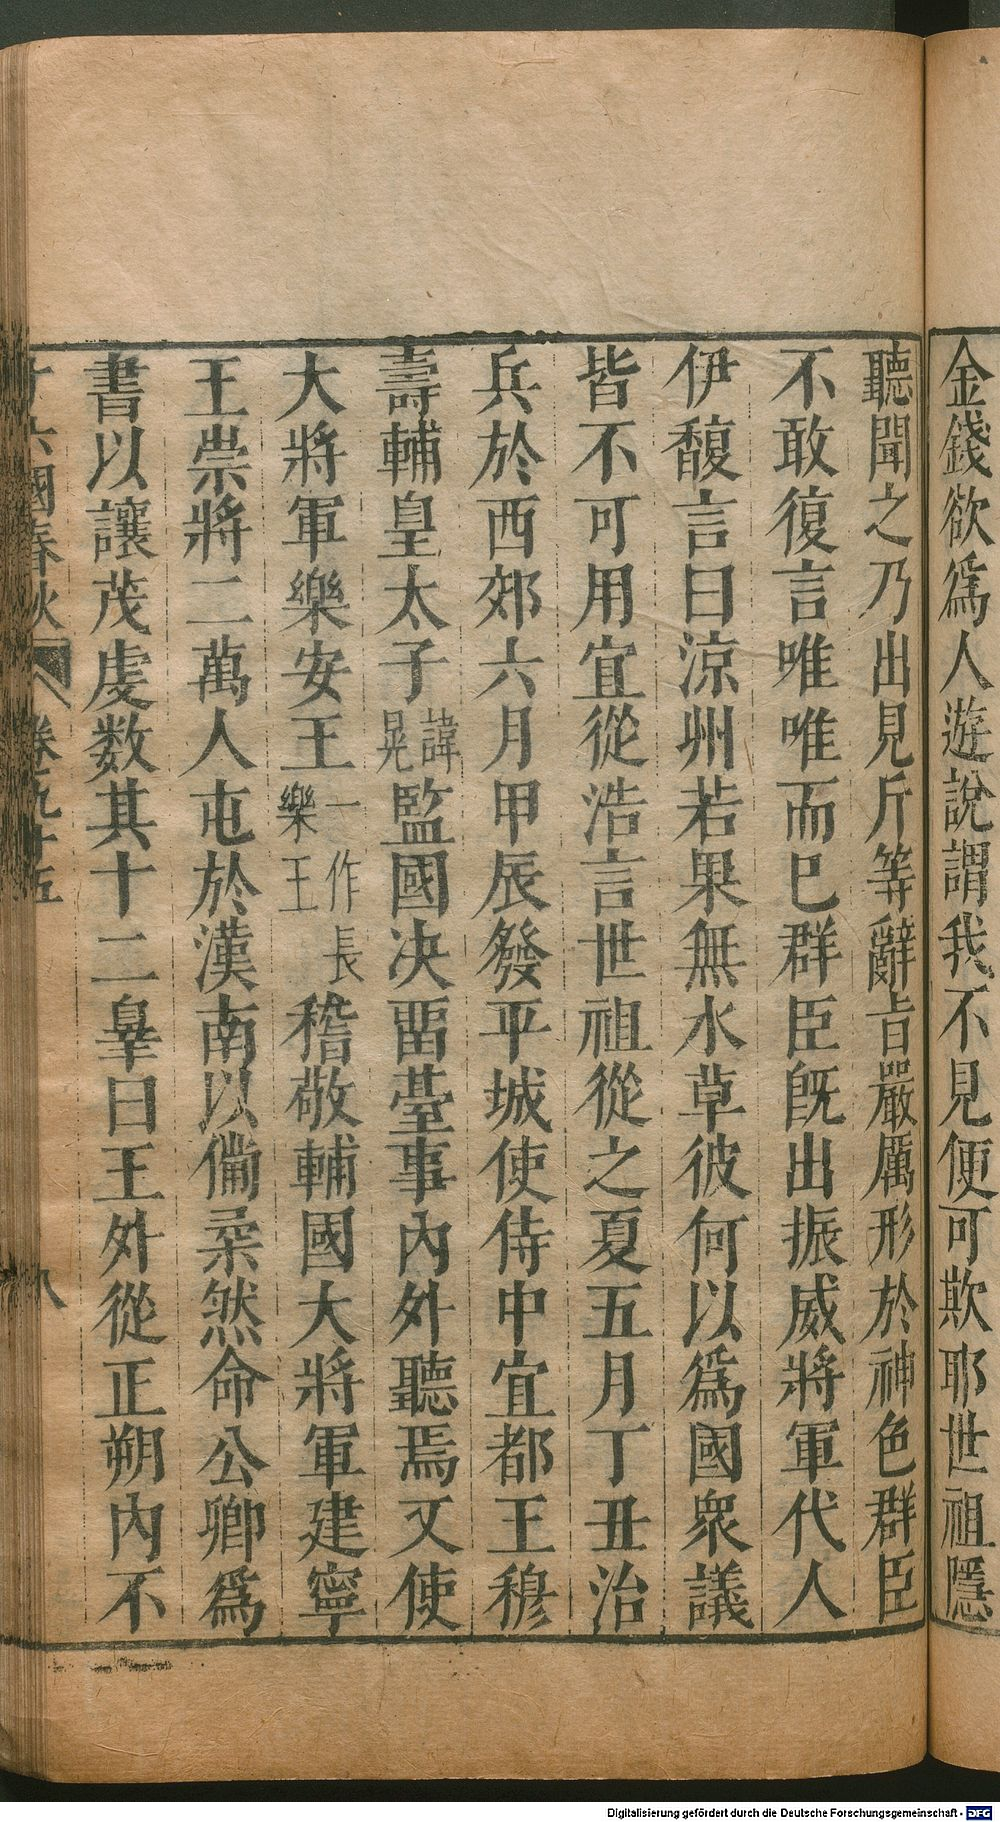 金錢欲爲人遊說謂我不見便可欺耶世祖隱
聽聞之乃出見斤等辭㫖嚴厲形於神色群臣
不敢復言唯唯而巳群臣旣出振威將軍代人
伊馥言曰涼州若果無水草彼何以爲國衆議
皆不可用宜從浩言世祖從之夏五月丁丑治
兵於西郊六月甲辰發平城使侍中宜都王穆
壽輔皇太子諱晃監國决畱臺事內外聽焉又使
大將軍樂安王一作長樂王稽敬輔國大將軍建寧
王崇將二萬人屯於漢南以俻柔然命公卿爲
書以讓茂虔数其十二辠曰王外從正朔内不
十六國春秋 卷九十五 八
Digitalisierung gefördert durch die Deutsche Forschungsgemeinschaft - DFG